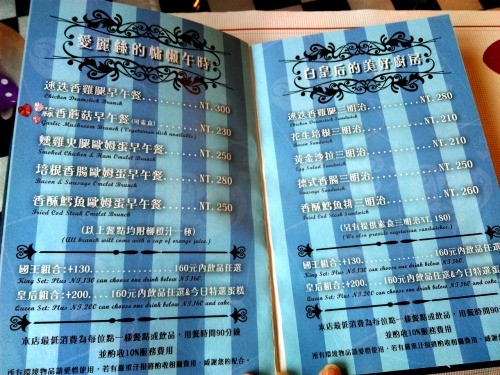 愛麗絲的慵懶午時
迷迭香雞腿早午餐..........NT. 300
Chicken Drumstick Brunch
蒜香蘑菇早午餐(可素食)..........NT. 230
Garlic Mushroom Brunch (Vegetarian dish available)
燻雞火腿歐姆蛋早午餐......NT. 250
Smoked Chicken & Ham Omelet Brunch
培根香腸歐姆蛋早午餐......NT. 280
Bacon & Sausage Omelet Brunch
香酥鱈魚歐姆蛋早午餐......NT. 250
Fried Cod Steak Omelet Brunch
(以上餐點均附柳橙汁一杯)
(All brunch will come with a cup of orange juice.)
國王組合:+130..................160元內飲品任選
King Set: Plus NT.130 can choose one drink below NT.160
皇后組合:+200....160元內飲品任選&今日特選蛋糕
Queen Set: Plus NT.200 can choose one drink below NT.160 and cake.
本店最低消費為每位點一樣餐點或飲品，用餐時間90分鐘
並酌收10%服務費用
所有環境物品請愛惜使用，若有嚴重汙損將酌收相關費用，感謝您的配合。
白皇后的美好廚房
迷迭香雞腿三明治..........NT. 280
Chicken Drumstick Sandwich
花生培根三明治..........NT. 210
Bacon Sandwich
黃金沙拉三明治..........NT. 210
Egg Salad Sandwich
德式香腸三明治..........NT. 250
Sausage Sandwich
香酥鱈魚排三明治..........NT. 260
Fried Cod Steak Sandwich
(另有提供素食三明治NT. 180)
(We also provide vegetarian sandwiches.)
國王組合:+130..................160元內飲品任選
King Set: Plus NT.130 can choose one drink below NT.160
皇后組合:+200....160元內飲品任選&今日特選蛋
Queen Set: Plus NT.200 can choose one drink below NT.160 and cake
本店最低消費為每位點一樣餐點或飲品，用餐時間90
並酌收10%服務費用
所有環境物品請愛惜使用，若有嚴重汙損將酌收相關費用，感謝